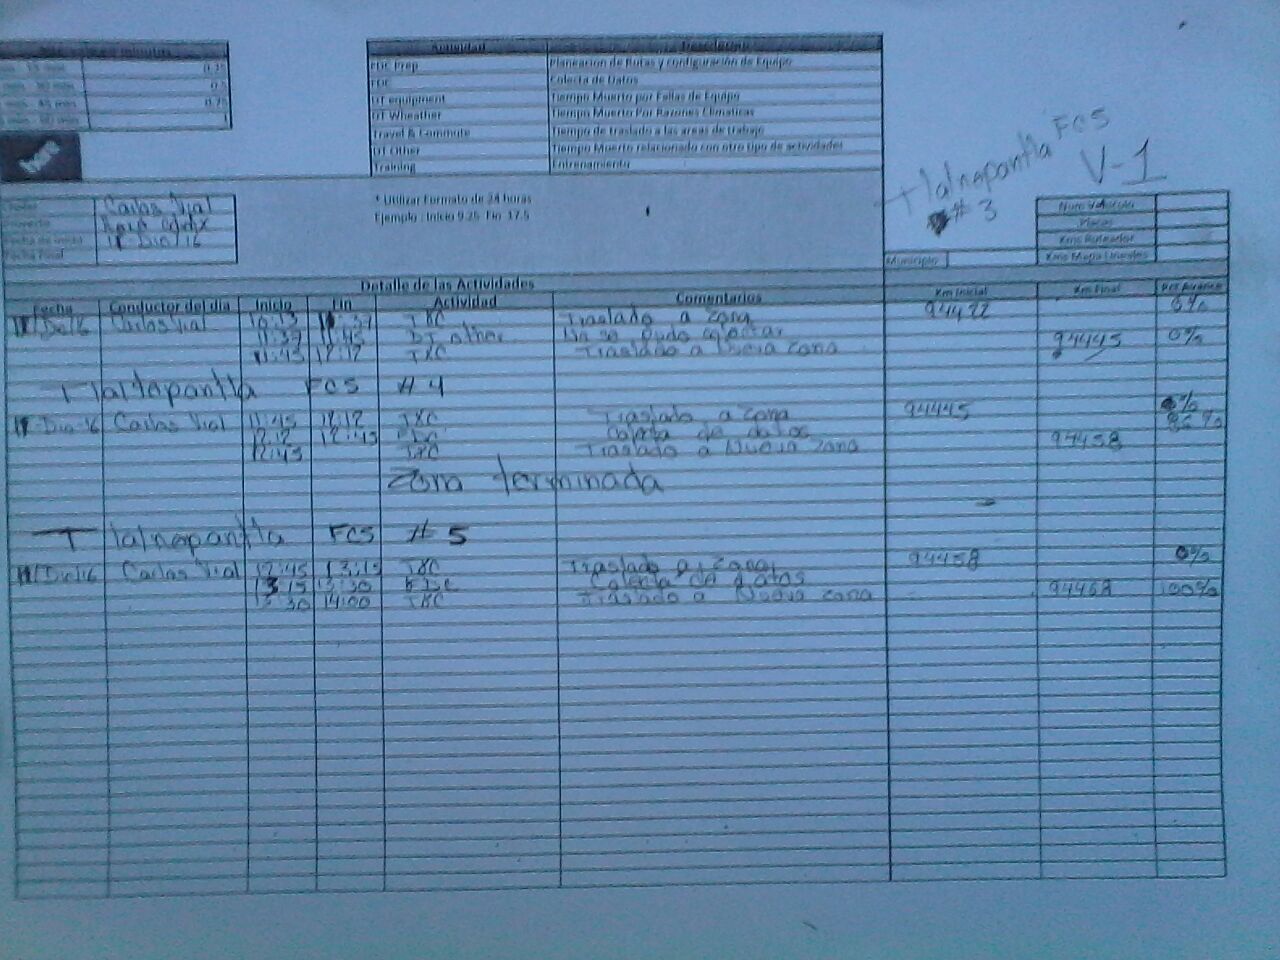 Actividad Descripción
EDC Prep Planeacion de Rutas y configuración de Equipo
EDC Colecta de Datos
DT equipment Tiempo Muerto por Fallas de Equipo
DT Wheather Tiempo Muerto Por Razones Climaticas
Travel & Commute Tiempo de traslado a las areas de trabajo
DT Other Tiempo Muerto relacionado con otro tipo de actividades
Training Entrenamiento
0.25
0.5
0.75
1
Tlalnepantla FCS
# 3
V-1
* Utilizar Formato de 24 horas
Ejemplo : Inicio 9.25 Fin 17.5
Carlos Vial
11 Dic/16
Fecha Final
Num Vehiculo
Placas
Kms Ruteador
Kms Mapa Lineales
Municipio
Detalle de las Actividades
Fecha Conductor del dia Inicio Fin Actividad Comentarios Km Inicial Km Final Pct Avance
11/Dic16 Carlos Vial 11:37 T&C Traslado a zona 94422 0%
11:37 11:45 DT other No se pudo colectar 94445 0%
11:45 12:12 T&C Traslado a Nueva zona
FCS # 4
11 Dic 16 Carlos Vial 11:45 12:12 T&C Traslado a zona 94445
12:12 12:45 EDC Colecta de datos
12:45 T&C Traslado a Nueva zona 94458
Zona terminada
Tlalnepantla FCS # 5
11/Dic/16 Carlos Vial 12:45 13:15 T&C Traslado a zona 94458 0%
13:15 13:30 EDC Colecta de datos
13:30 14:00 T&C Traslado a Nueva zona 94468 100%